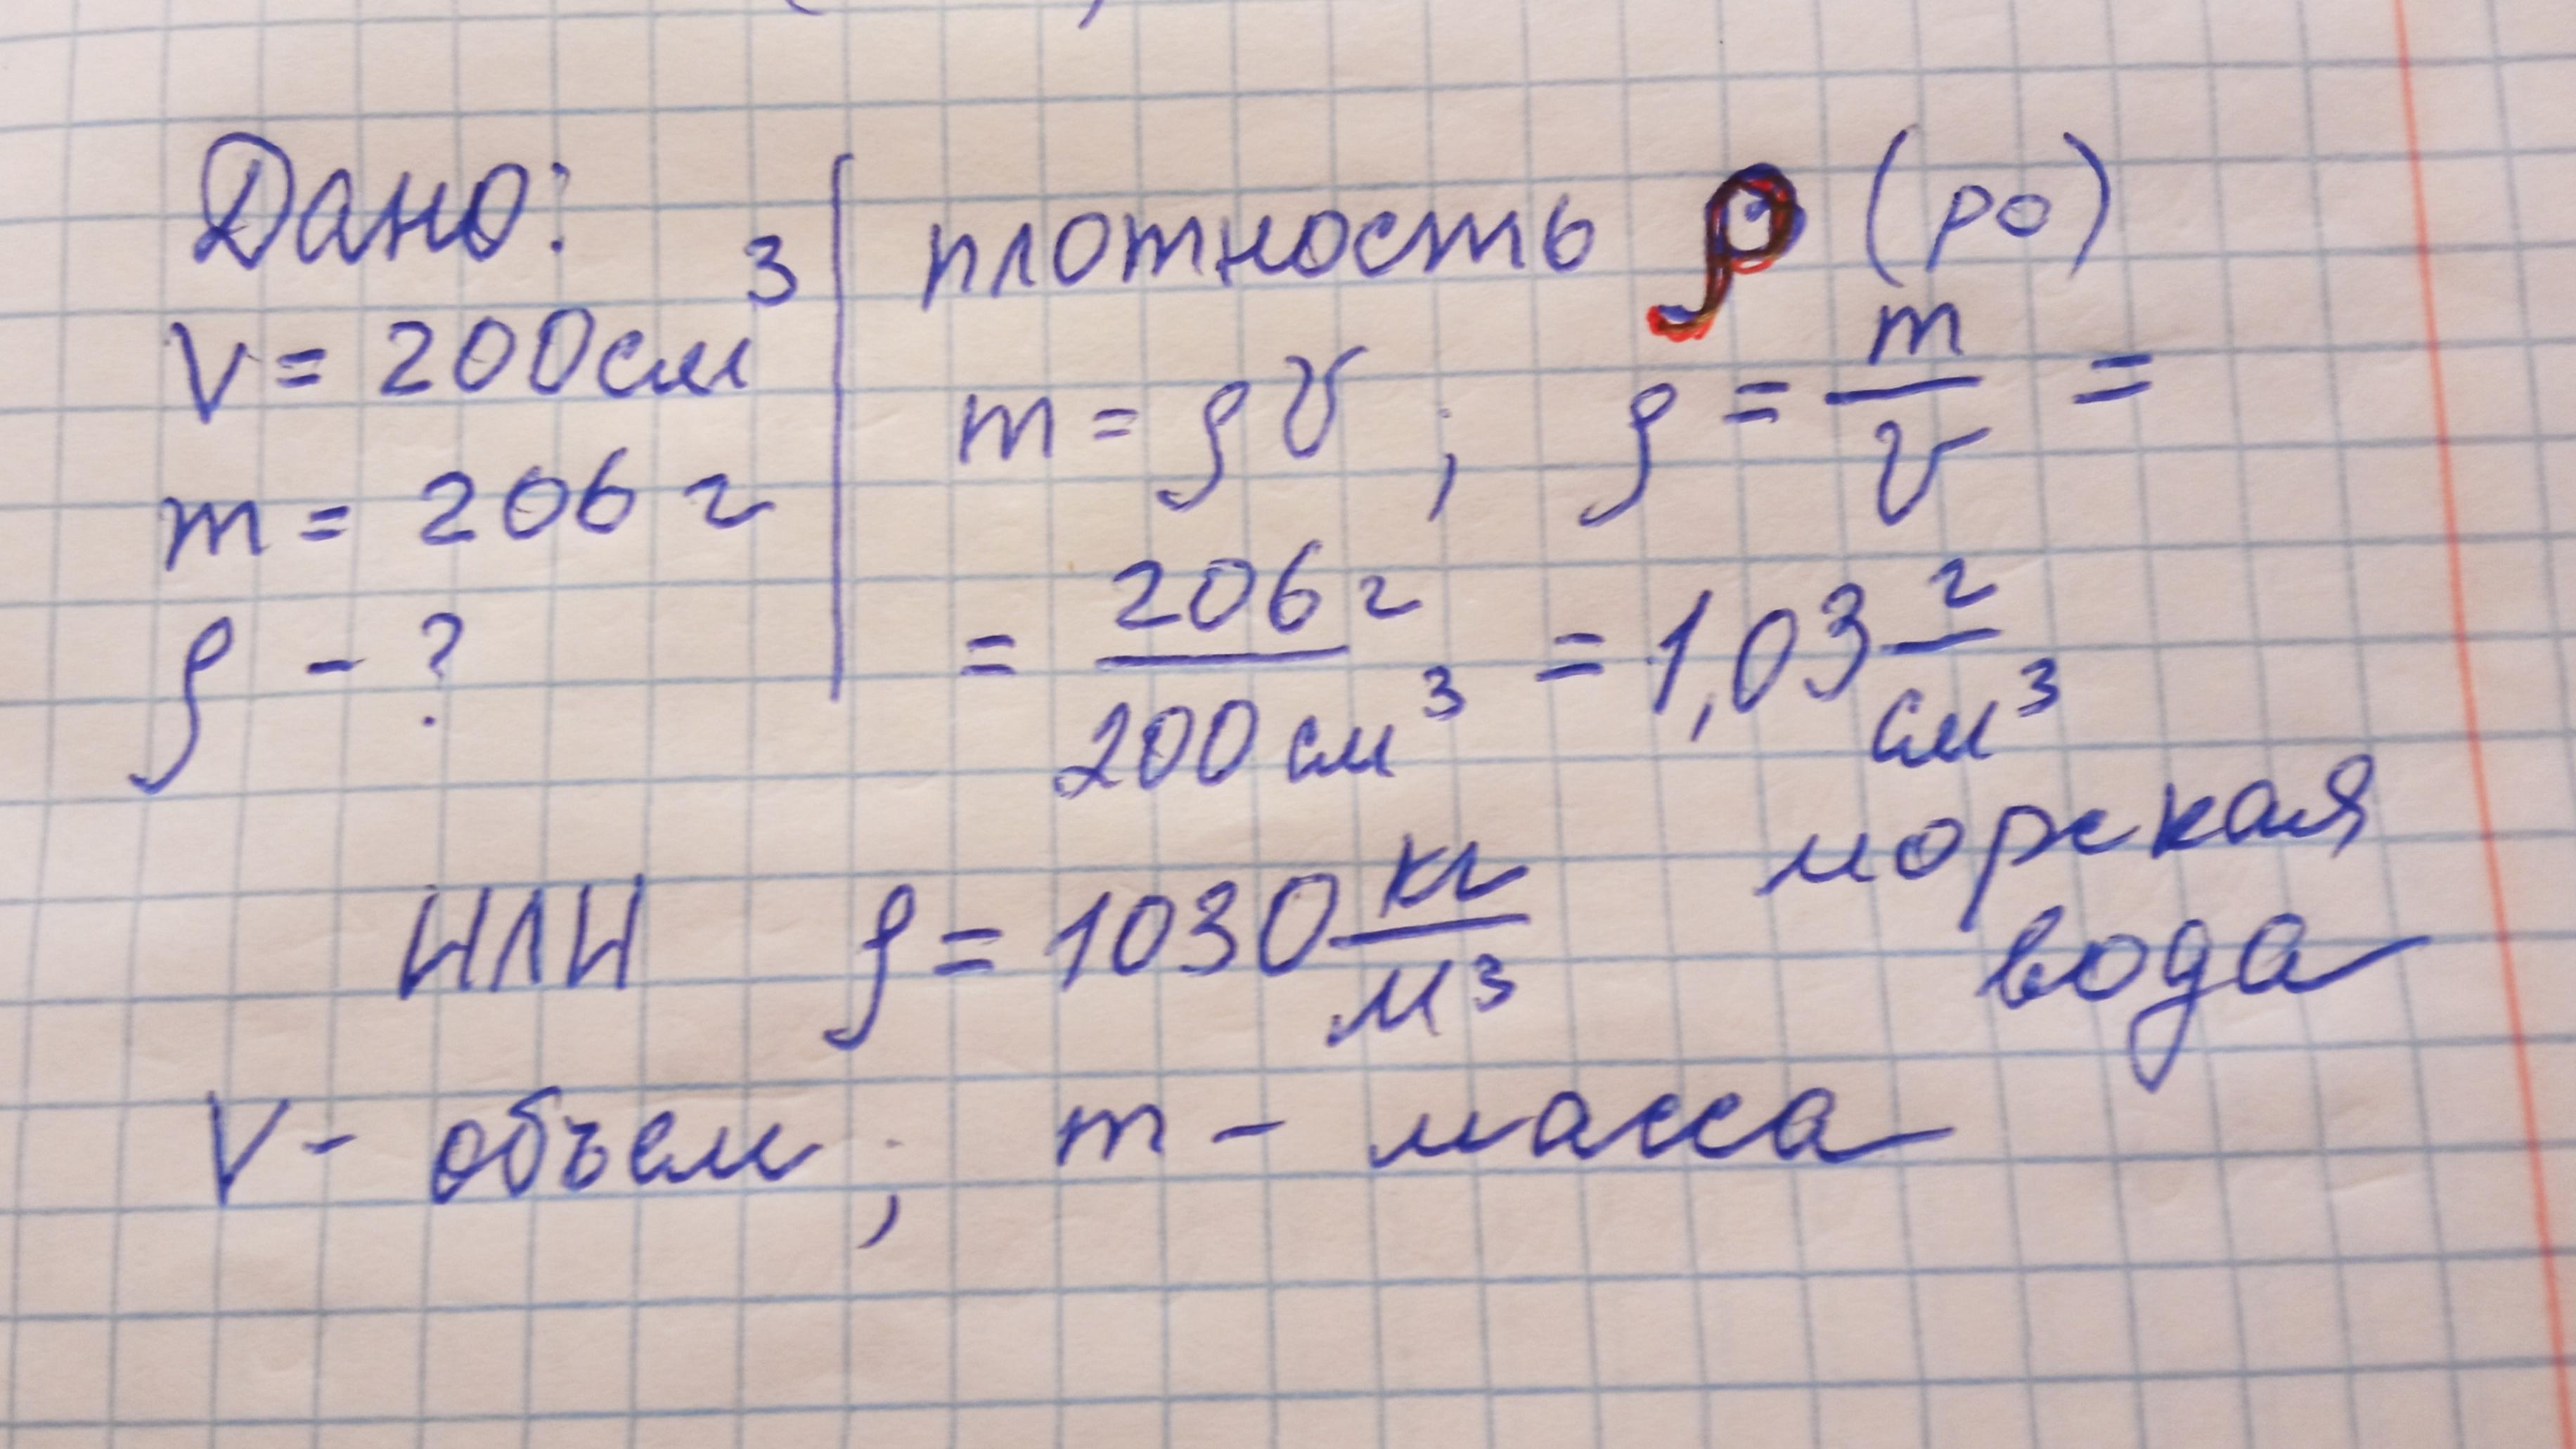 Дано:
V = 200 см³
m = 206 г
ρ - ?
плотность ρ (ро)
m = ρV ; ρ = m/V =
= 206 г / 200 см³ = 1,03 г/см³
или ρ = 1030 кг/м³
морская
вода
V - объем ; m - масса